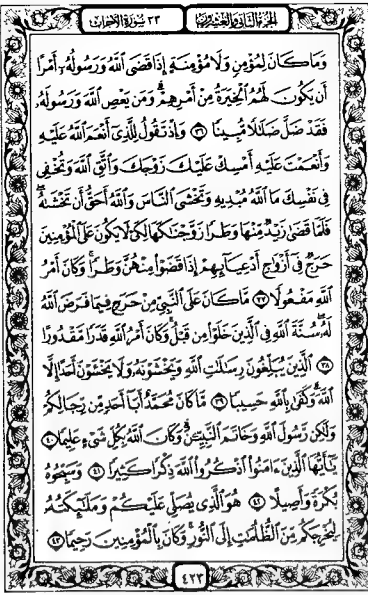 الجزء الثاني والعشرون
٣٣ سورة الأحزاب
وَمَا كَانَ لِمُؤْمِنٍ وَلَا مُؤْمِنَةٍ إِذَا قَضَى ٱللَّهُ وَرَسُولُهُۥٓ أَمْرًا
أَن يَكُونَ لَهُمُ ٱلْخِيَرَةُ مِنْ أَمْرِهِمْ ۗ وَمَن يَعْصِ ٱللَّهَ وَرَسُولَهُۥ
فَقَدْ ضَلَّ ضَلَٰلًا مُّبِينًا ٣٦ وَإِذْ تَقُولُ لِلَّذِىٓ أَنْعَمَ ٱللَّهُ عَلَيْهِ
وَأَنْعَمْتَ عَلَيْهِ أَمْسِكْ عَلَيْكَ زَوْجَكَ وَٱتَّقِ ٱللَّهَ وَتُخْفِى
فِى نَفْسِكَ مَا ٱللَّهُ مُبْدِيهِ وَتَخْشَى ٱلنَّاسَ وَٱللَّهُ أَحَقُّ أَن تَخْشَىٰهُ ۖ
فَلَمَّا قَضَىٰ زَيْدٌ مِّنْهَا وَطَرًا زَوَّجْنَٰكَهَا لِكَىْ لَا يَكُونَ عَلَى ٱلْمُؤْمِنِينَ
حَرَجٌ فِىٓ أَزْوَٰجِ أَدْعِيَآئِهِمْ إِذَا قَضَوْا۟ مِنْهُنَّ وَطَرًا ۚ وَكَانَ أَمْرُ
ٱللَّهِ مَفْعُولًا ٣٧ مَّا كَانَ عَلَى ٱلنَّبِىِّ مِنْ حَرَجٍ فِيمَا فَرَضَ ٱللَّهُ
لَهُۥ ۖ سُنَّةَ ٱللَّهِ فِى ٱلَّذِينَ خَلَوْا۟ مِن قَبْلُ ۚ وَكَانَ أَمْرُ ٱللَّهِ قَدَرًا مَّقْدُورًا
٣٨ ٱلَّذِينَ يُبَلِّغُونَ رِسَٰلَٰتِ ٱللَّهِ وَيَخْشَوْنَهُۥ وَلَا يَخْشَوْنَ أَحَدًا إِلَّا
ٱللَّهَ ۗ وَكَفَىٰ بِٱللَّهِ حَسِيبًا ٣٩ مَّا كَانَ مُحَمَّدٌ أَبَآ أَحَدٍ مِّن رِّجَالِكُمْ
وَلَٰكِن رَّسُولَ ٱللَّهِ وَخَاتَمَ ٱلنَّبِيِّۦنَ ۗ وَكَانَ ٱللَّهُ بِكُلِّ شَىْءٍ عَلِيمًا ٤٠
يَٰٓأَيُّهَا ٱلَّذِينَ ءَامَنُوا۟ ٱذْكُرُوا۟ ٱللَّهَ ذِكْرًا كَثِيرًا ٤١ وَسَبِّحُوهُ
بُكْرَةً وَأَصِيلًا ٤٢ هُوَ ٱلَّذِى يُصَلِّى عَلَيْكُمْ وَمَلَٰٓئِكَتُهُۥ
لِيُخْرِجَكُم مِّنَ ٱلظُّلُمَٰتِ إِلَى ٱلنُّورِ ۚ وَكَانَ بِٱلْمُؤْمِنِينَ رَحِيمًا ٤٣
٤٢٣